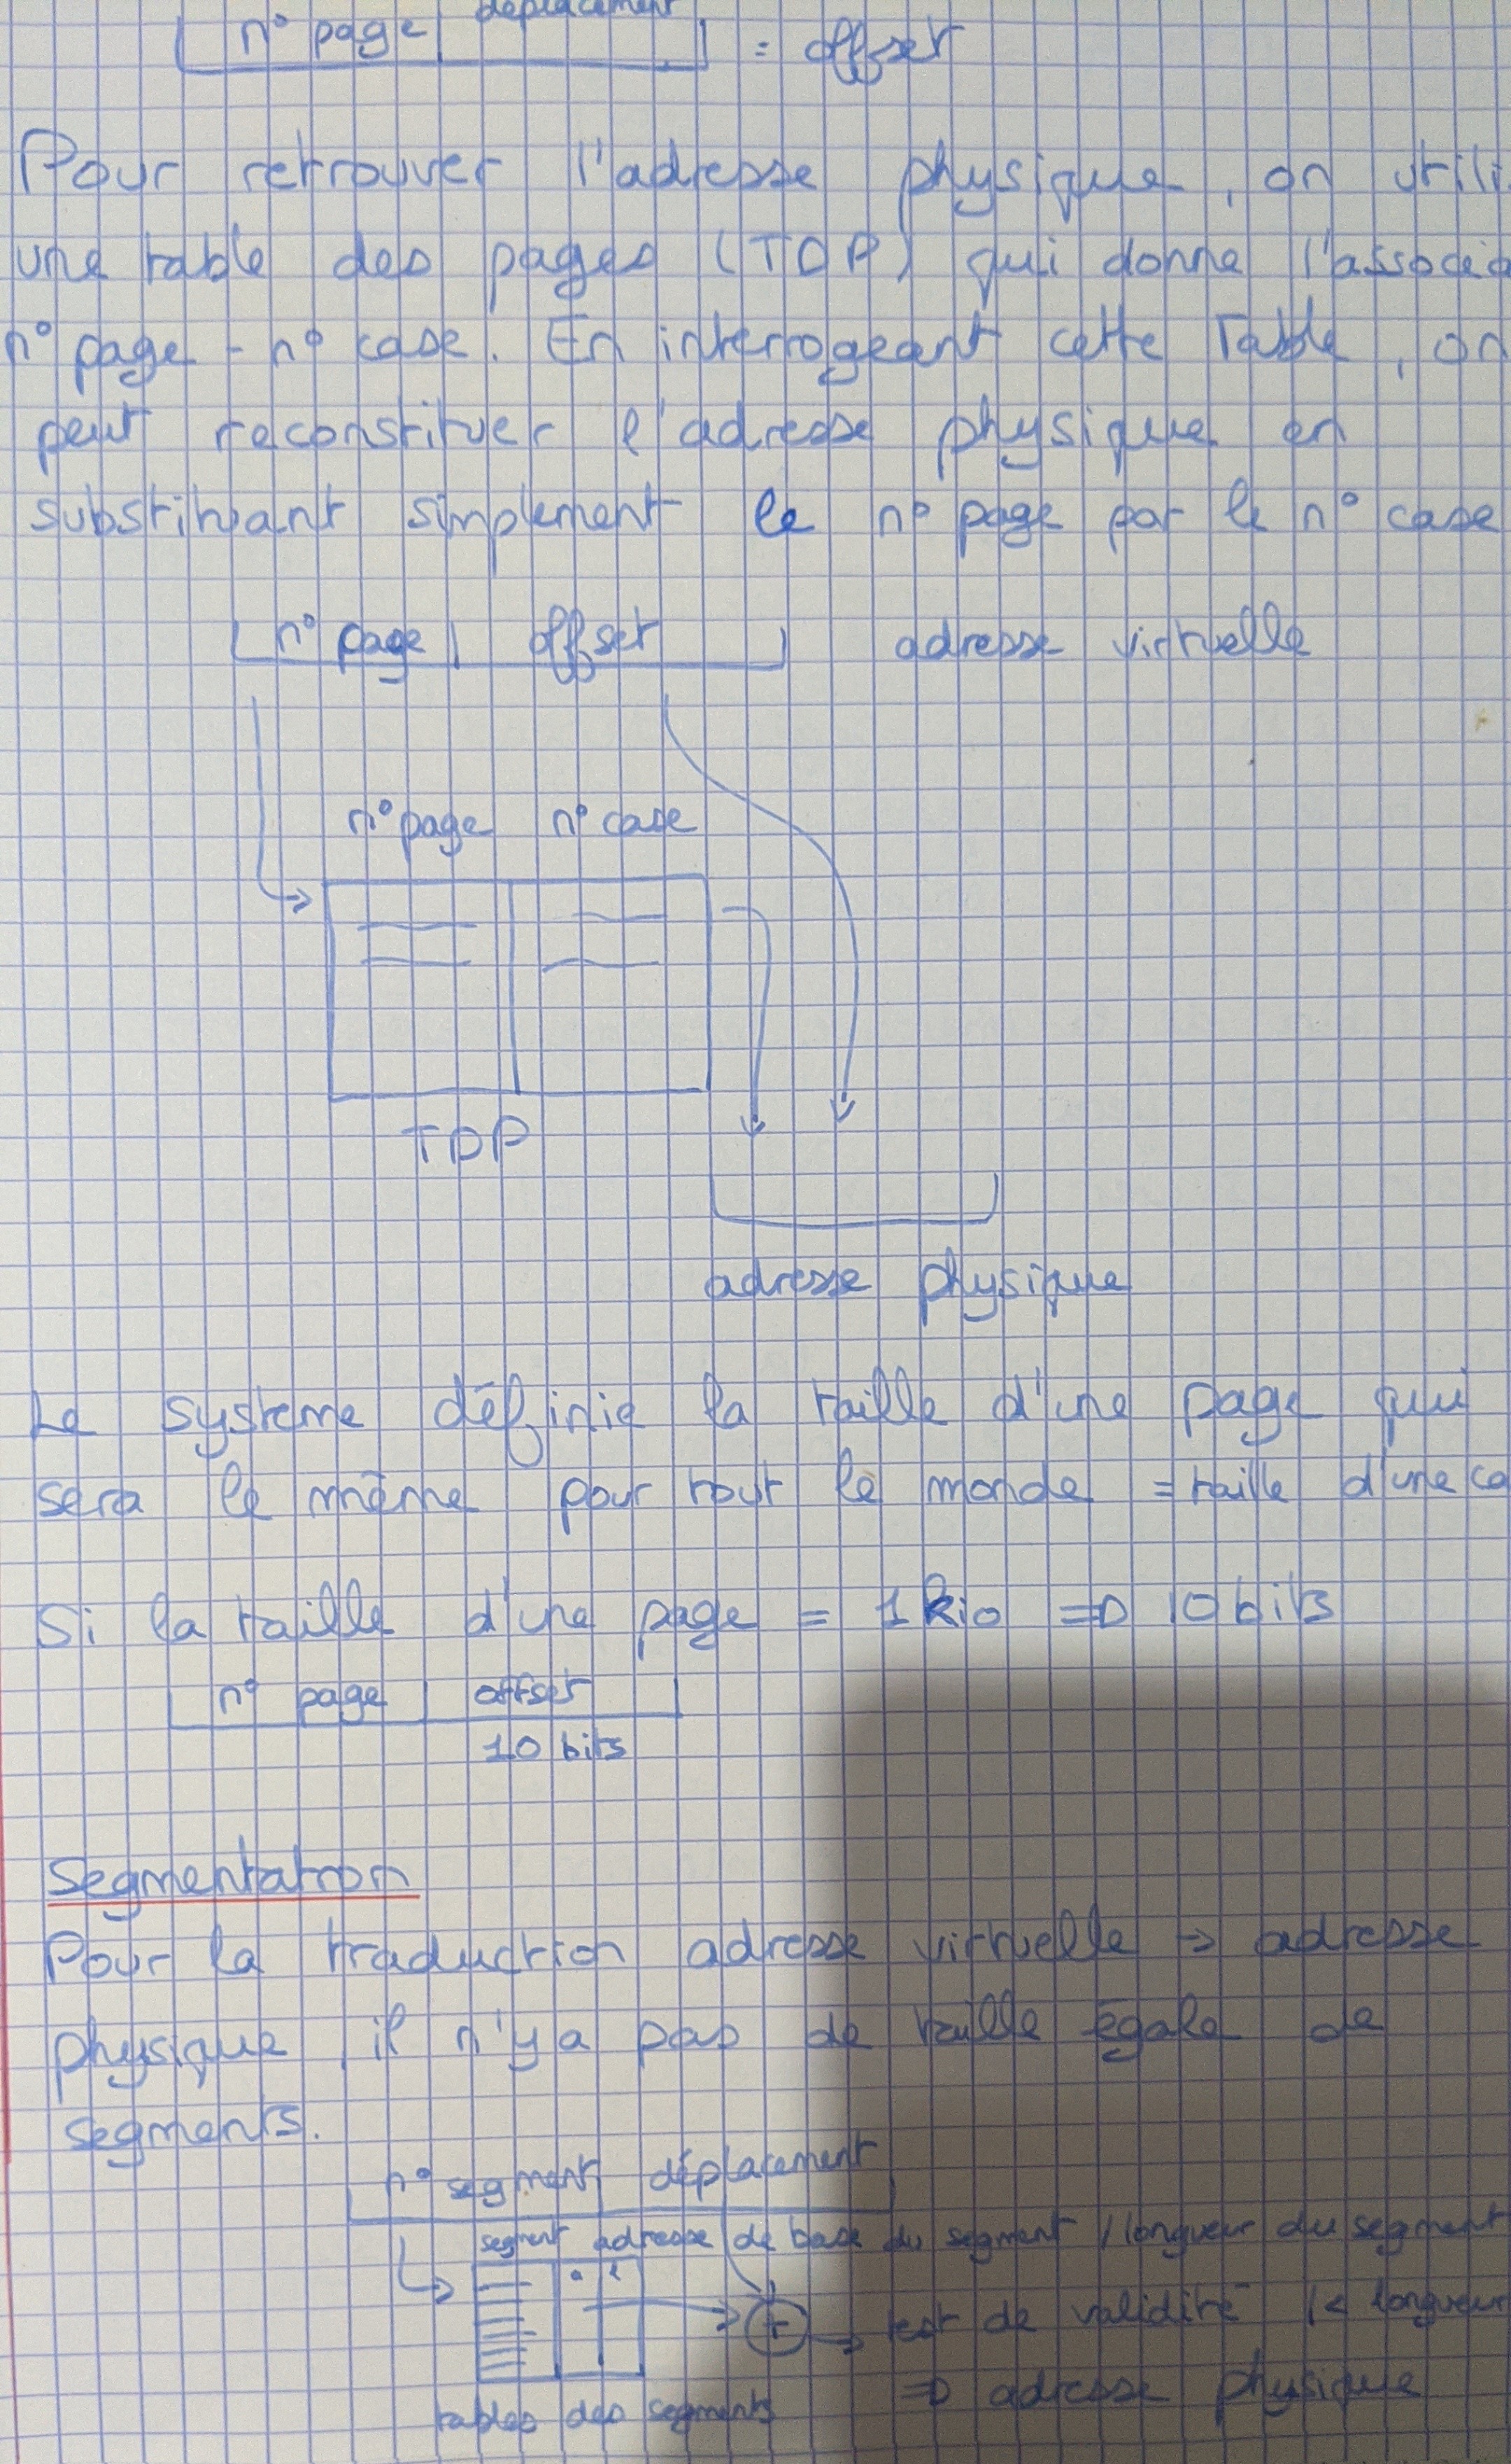 n° page déplacement
= offset
Pour retrouver l'adresse physique, on utili
une table des pages (TDP) qui donne l'associa
n° page - n° case. En interrogeant cette Table, on
peut reconstituer l'adresse physique en
substituant simplement le n° page par le n° case
n° page offset adresse virtuelle
n° page n° case
TDP
adresse physique
Le système définie la taille d'une page qui
sera le même pour tout le monde = taille d'une ca
Si la taille d'une page = 1 kio => 10 bits
n° page offset
10 bits
Segmentation
Pour la traduction adresse virtuelle -> adresse
physique, il n'y a pas de taille égale de
segments.
n° segment déplacement
segment adresse de base du segment / longueur du segment
+ -> test de validité (< longueur
tables des segments => adresse physique